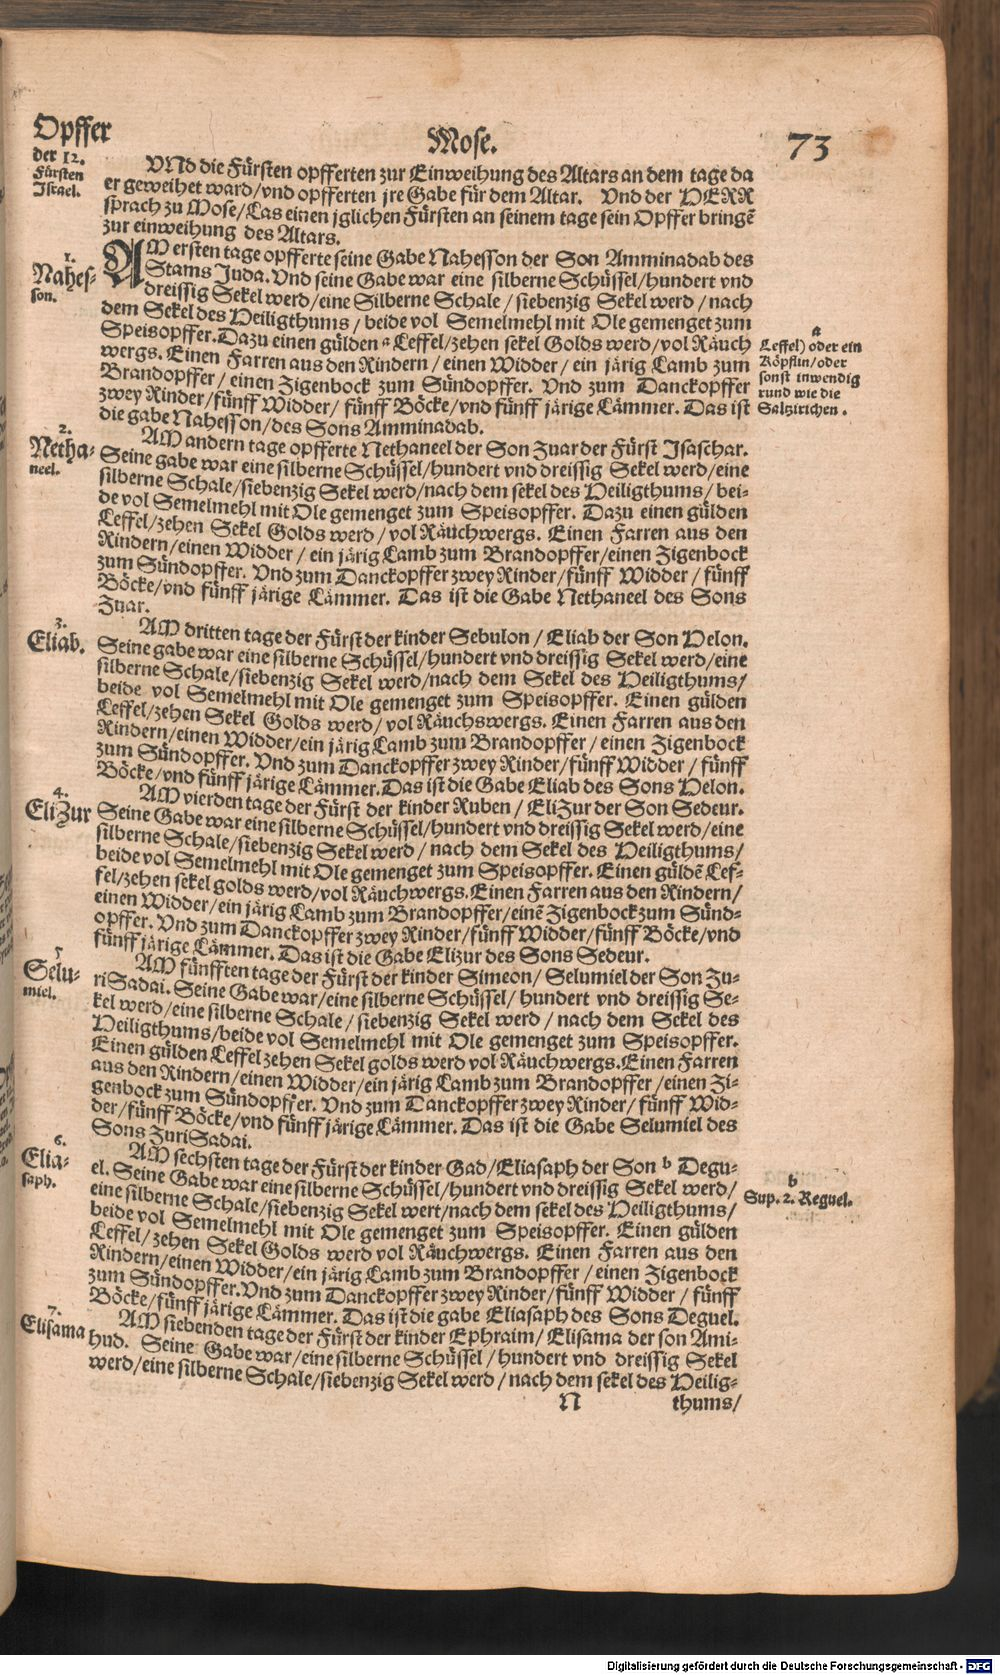 Mose. 73
Opffer
der 12.
Fürsten
Israel.
VNd die Fürsten opfferten zur Einweihung des Altars an dem tage da
er geweihet ward/vnd opfferten jre Gabe für dem Altar. Vnd der HERR
sprach zu Mose/Las einen jglichen Fürsten an seinem tage sein Opffer bringē
zur einweihung des Altars.
1.
Nahes-
son.
AM ersten tage opfferte seine Gabe Nahesson der Son Amminadab des
Stams Juda. Vnd seine Gabe war eine silberne Schüssel/hundert vnd
dreissig Sekel werd/eine Silberne Schale / siebenzig Sekel werd / nach
dem Sekel des Heiligthums / beide vol Semelmehl mit Ole gemenget zum
Speisopffer. Dazu einen gülden a Leffel/zehen sekel Golds werd/vol Räuch
wergs. Einen Farren aus den Rindern / einen Widder / ein järig Lamb zum
Brandopffer / einen Zigenbock zum Sündopffer. Vnd zum Danckopffer
zwey Rinder/fünff Widder/ fünff Böcke/vnd fünff järige Lämmer. Das ist
die gabe Nahesson/des Sons Amminadab.
a
Leffel) oder ein
Köpflin/oder
sonst inwendig
rund wie die
Saltzirichen.
2.
Netha-
neel.
AM andern tage opfferte Nethaneel der Son Zuar der Fürst Isaschar.
Seine gabe war eine silberne Schüssel/hundert vnd dreissig Sekel werd/eine
silberne Schale/siebenzig Sekel werd/nach dem sekel des Heiligthums / bei-
de vol Semelmehl mit Ole gemenget zum Speisopffer. Dazu einen gülden
Leffel/zehen Sekel Golds werd / vol Räuchwergs. Einen Farren aus den
Rindern/einen Widder / ein järig Lamb zum Brandopffer/einen Zigenbock
zum Sündopffer. Vnd zum Danckopffer zwey Rinder/fünff Widder / fünff
Böcke/vnd fünff järige Lämmer. Das ist die Gabe Nethaneel des Sons
Zuar.
3.
Eliab.
AM dritten tage der Fürst der kinder Sebulon / Eliab der Son Helon.
Seine gabe war eine silberne Schüssel/hundert vnd dreissig Sekel werd/eine
silberne Schale/siebenzig Sekel werd/nach dem Sekel des Heiligthums/
beide vol Semelmehl mit Ole gemenget zum Speisopffer. Einen gülden
Leffel/zehen Sekel Golds werd/ vol Räuchswergs. Einen Farren aus den
Rindern/einen Widder/ein järig Lamb zum Brandopffer / einen Zigenbock
zum Sündopffer. Vnd zum Danckopffer zwey Rinder/fünff Widder / fünff
Böcke/vnd fünff järige Lämmer. Das ist die Gabe Eliab des Sons Helon.
4.
EliZur
AM vierden tage der Fürst der kinder Ruben / EliZur der Son Sedeur.
Seine Gabe war eine silberne Schüssel/hundert vnd dreissig Sekel werd/eine
silberne Schale/siebenzig Sekel werd / nach dem Sekel des Heiligthums/
beide vol Semelmehl mit Ole gemenget zum Speisopffer. Einen güldē Lef-
fel/zehen sekel golds werd/vol Räuchwergs. Einen Farren aus den Rindern/
einen Widder/ein järig Lamb zum Brandopffer/einē Zigenbock zum Sünd-
opffer. Vnd zum Danckopffer zwey Rinder/fünff Widder/fünff Böcke/vnd
fünff järige Lämmer. Das ist die Gabe Elizur des Sons Sedeur.
5
Selu-
miel.
AM fünfften tage der Fürst der kinder Simeon/ Selumiel der Son Zu-
riSadai. Seine Gabe war/eine silberne Schüssel/ hundert vnd dreissig Se-
kel werd/eine silberne Schale / siebenzig Sekel werd / nach dem Sekel des
Heiligthums/beide vol Semelmehl mit Ole gemenget zum Speisopffer.
Einen gülden Leffel zehen Sekel golds werd vol Räuchwergs. Einen Farren
aus den Rindern/einen Widder/ein järig Lamb zum Brandopffer /einen Zi-
genbock zum Sündopffer. Vnd zum Danckopffer zwey Rinder/ fünff Wid-
der/fünff Böcke/vnd fünff järige Lämmer. Das ist die Gabe Selumiel des
Sons ZuriSadai.
6.
Elia-
saph.
AM sechsten tage der Fürst der kinder Gad/Eliasaph der Son b Degu-
el. Seine Gabe war eine silberne Schüssel/hundert vnd dreissig Sekel werd/
eine silberne Schale/siebenzig Sekel wert/nach dem sekel des Heiligthums/
beide vol Semelmehl mit Ole gemenget zum Speisopffer. Einen gülden
Leffel/ zehen Sekel Golds werd vol Räuchwergs. Einen Farren aus den
Rindern/einen Widder/ein järig Lamb zum Brandopffer / einen Zigenbock
zum Sündopffer. Vnd zum Danckopffer zwey Rinder/fünff Widder / fünff
Böcke/fünff järige Lämmer. Das ist die gabe Eliasaph des Sons Deguel.
b
Sup. 2. Reguel.
7.
Elisama
AM siebenden tage der Fürst der kinder Ephraim/ Elisama der son Ami-
hud. Seine Gabe war/eine silberne Schüssel / hundert vnd dreissig Sekel
werd/eine silberne Schale/siebenzig Sekel werd / nach dem sekel des Heilig-
N thums/
Digitalisierung gefördert durch die Deutsche Forschungsgemeinschaft - DFG